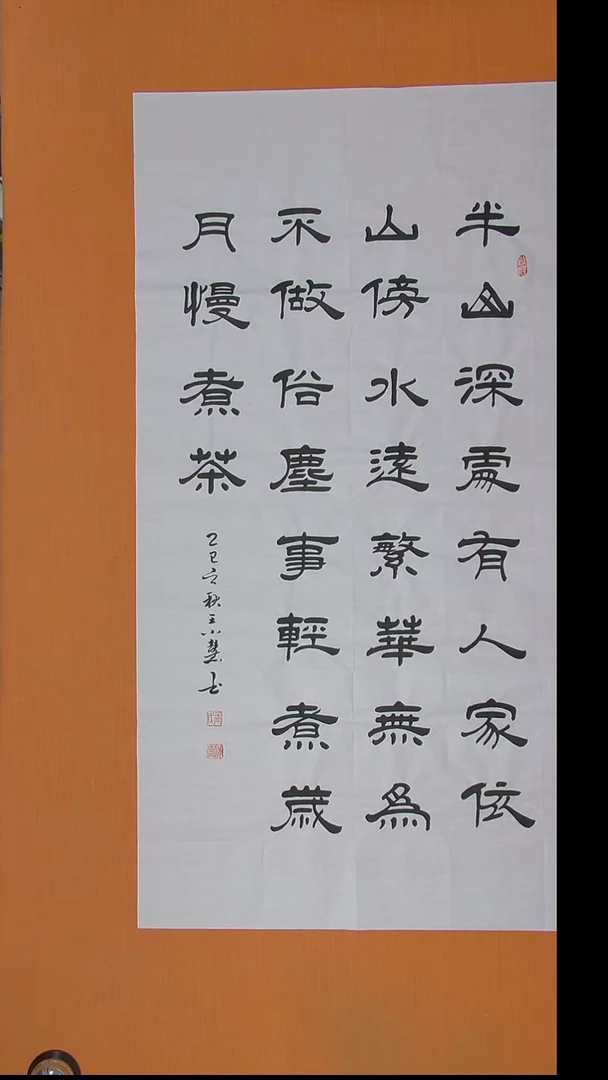 半山深處有人家依
山傍水遠繁華無爲
不做俗塵事輕煮歲
月慢煮茶
乙巳之秋王小慧书